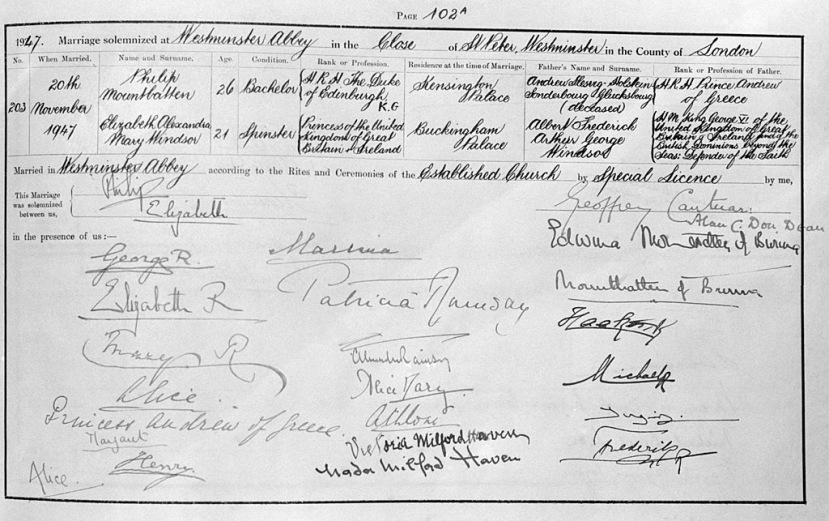 PAGE 102A
1947. Marriage solemnized at Westminster Abbey in the Close of St Peter, Westminster in the County of London
No. When Married. Name and Surname. Age. Condition. Rank or Profession. Residence at the time of Marriage. Father's Name and Surname. Rank or Profession of Father.
203
20th
November
1947
Philip
Mountbatten
26 Bachelor
H.R.H The Duke
of Edinburgh
K.G
Kensington
Palace
Andrew Sleswig-Holstein
Sonderbourg Glucksbourg
(deceased)
H.R.H Prince Andrew
of Greece
Elizabeth Alexandra
Mary Windsor
21 Spinster
Princess of the United
Kingdom of Great
Britain & Ireland
Buckingham
Palace
Albert Frederick
Arthur George
Windsor
H.M. King George VI of the
United Kingdom of Great
Britain & Ireland and of the
British Dominions beyond the
Seas: Defender of the Faith
Married in Westminster Abbey according to the Rites and Ceremonies of the Established Church by Special Licence by me,
This Marriage
was solemnized
between us,
Philip
Elizabeth
Geoffrey Cantuar:
Alan C. Don, Dean
in the presence of us:—
George R.
Elizabeth R
Mary R
Alice.
Princess Andrew of Greece
Margaret
Henry.
Alice.
Marina
Patricia Ramsay
Alexander Ramsay
Alice Mary
Athlone
Victoria Milford Haven
Nada Milford Haven
Edwina Mountbatten of Burma
Mountbatten of Burma
Haakon R
Michael R
Frederik R